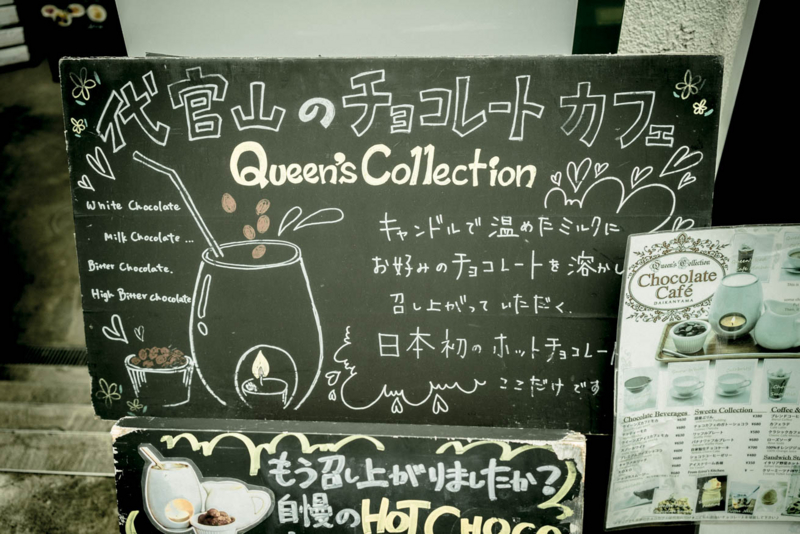 代官山のチョコレートカフェ
Queen's Collection
White Chocolate
Milk Chocolate ...
Bitter Chocolate.
High Bitter chocolate
キャンドルで温めたミルクに
お好みのチョコレートを溶かし
召し上がっていただく.
日本初のホットチョコレー
ここだけです
Queen's Collection
Chocolate
Café
DAIKANYAMA
Chocolate Beverages
Sweets Collection
Coffee &
もう召し上がりましたか?
自慢のHOT CHOCO